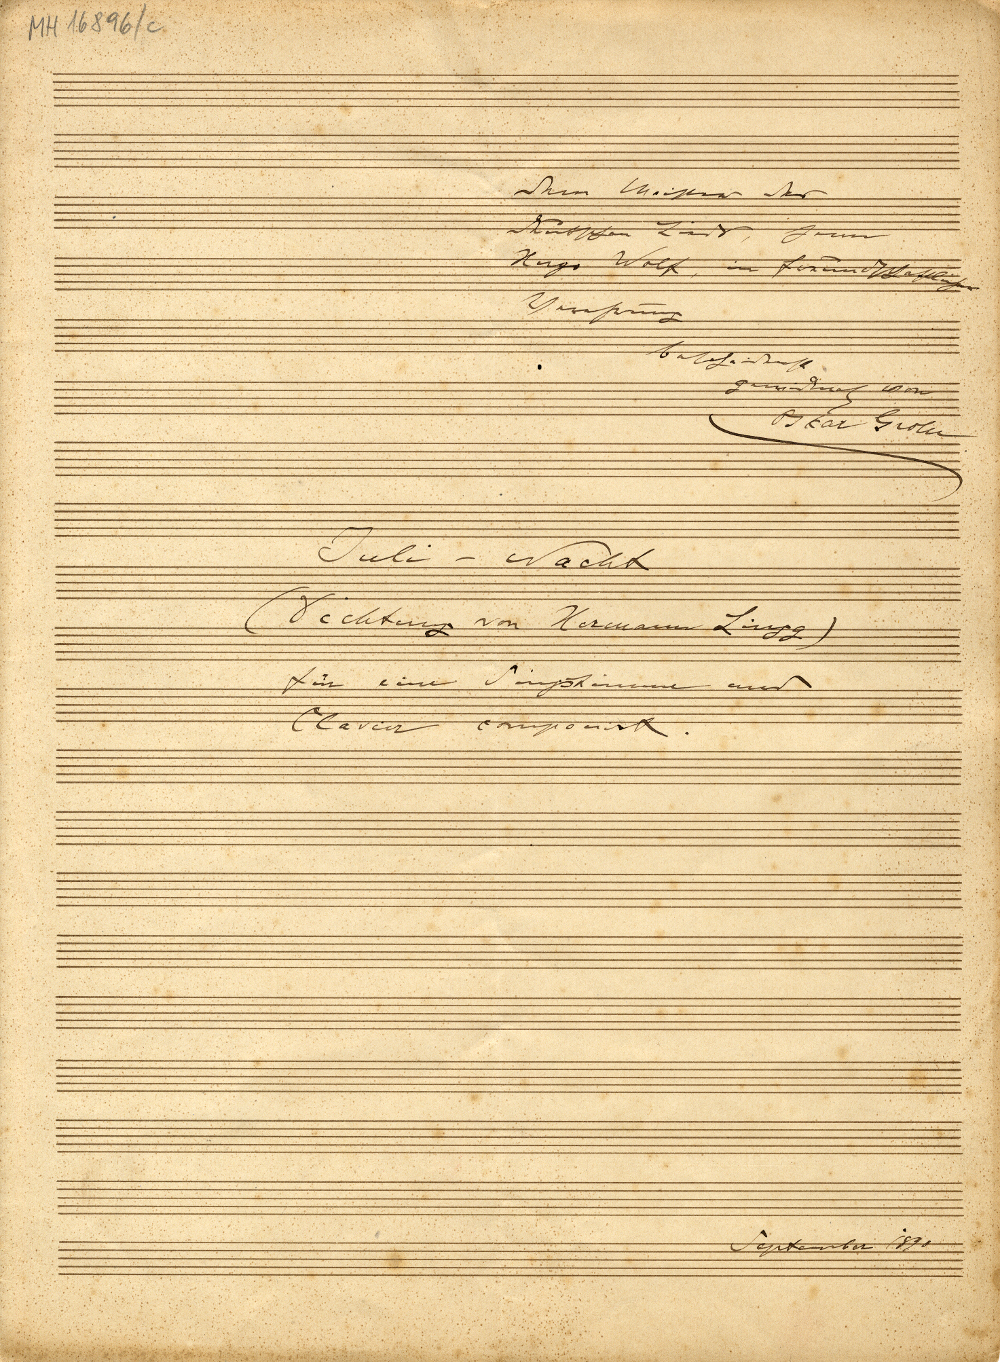 MH 16896/c.
Dem Meister des
deutschen Liedes, Herrn
Hugo Wolf, in freundschaftlicher
Verehrung
bescheidenst
gewidmet von
Oskar Grohe
Juli - Nacht
(Dichtung von Hermann Lingg)
für eine Singstimme und
Clavier componirt.
September 1890